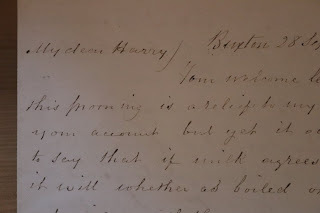 My dear Harry) Buxton 28 Se
Your welcome le
this morning is a relief to my
your account but yet it
to say that if milk agrees
it will whether as boiled or